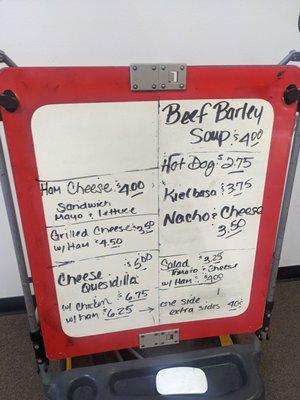 Ham Cheese $4.00
Sandwich
Mayo & lettuce
Grilled Cheese $3.50
w/ Ham $4.50
Cheese $5.00
Quesidilla
w/ chicken $6.75
w/ Ham $6.25
Beef Barley
Soup $4.00
Hot Dog $2.75
Kielbasa $3.75
Nacho & Cheese
3.50
Salad $3.25
Tomato & Cheese
w/ Ham $4.00
one side 1
extra sides .40¢